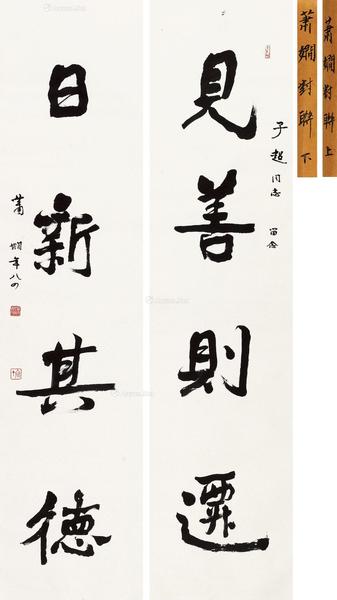 見善則遷
子超同志 留念
日新其德
蕭嫻年八四
蕭嫻對聯上
蕭嫻對聯下